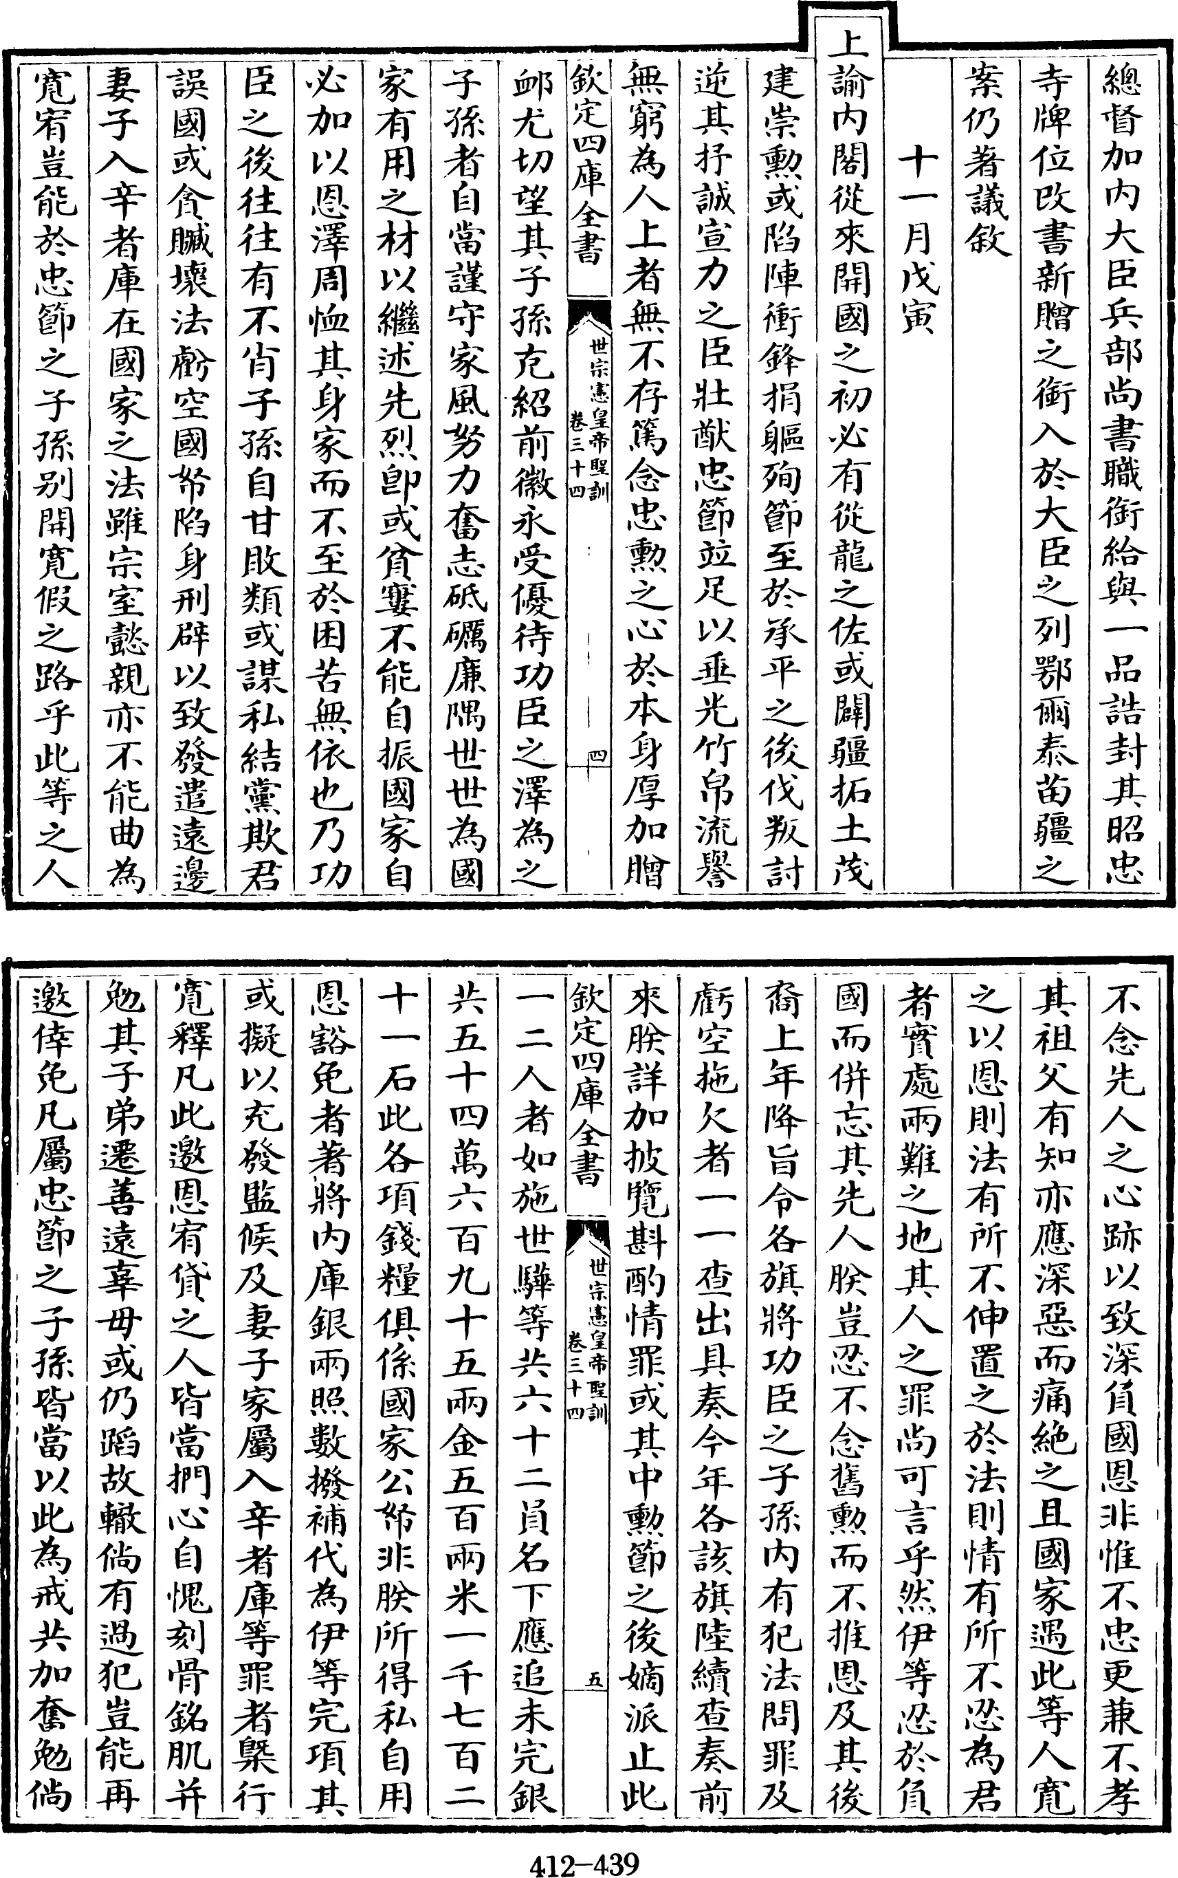 總督加内大臣兵部尚書職銜給與一品誥封其昭忠
寺牌位改書新贈之銜入於大臣之列鄂爾泰苗疆之
案仍著議敘
十一月戊寅
上諭内閣從來開國之初必有從龍之佐或闢疆拓土茂
建崇勲或陷陣衝鋒捐軀殉節至於承平之後伐叛討
逆其抒誠宣力之臣壯猷忠節並足以垂光竹帛流譽
無窮為人上者無不存篤念忠勲之心於本身厚加贈
欽定四庫全書
世宗憲皇帝聖訓
卷三十四
四
卹尤切望其子孫克紹前徽永受優待功臣之澤為之
子孫者自當謹守家風努力奮志砥礪廉隅世世為國
家有用之材以繼述先烈即或貧窶不能自振國家自
必加以恩澤周恤其身家而不至於困苦無依也乃功
臣之後往往有不肖子孫自甘敗類或謀私結黨欺君
誤國或貪贓壞法虧空國帑陷身刑辟以致發遣遠邊
妻子入辛者庫在國家之法雖宗室懿親亦不能曲為
寛宥豈能於忠節之子孫别開寛假之路乎此等之人
不念先人之心跡以致深負國恩非惟不忠更兼不孝
其祖父有知亦應深惡而痛絶之且國家遇此等人寛
之以恩則法有所不伸置之於法則情有所不忍為君
者實處兩難之地其人之罪尚可言乎然伊等忍於負
國而併忘其先人朕豈忍不念舊勲而不推恩及其後
裔上年降旨令各旗將功臣之子孫内有犯法問罪及
虧空拖欠者一一查出具奏今年各該旗陸續查奏前
來朕詳加披覽斟酌情罪或其中勲節之後嫡派止此
欽定四庫全書
世宗憲皇帝聖訓
卷三十四
五
一二人者如施世驊等共六十二員名下應追未完銀
共五十四萬六百九十五兩金五百兩米一千七百二
十一石此各項錢糧俱係國家公帑非朕所得私自用
恩豁免者著將内庫銀兩照數撥補代為伊等完項其
或擬以充發監候及妻子家屬入辛者庫等罪者槩行
寛釋凡此邀恩宥貸之人皆當捫心自愧刻骨銘肌并
勉其子弟遷善逺辜毋或仍蹈故轍倘有過犯豈能再
邀倖免凡屬忠節之子孫皆當以此為戒共加奮勉倘
412-439